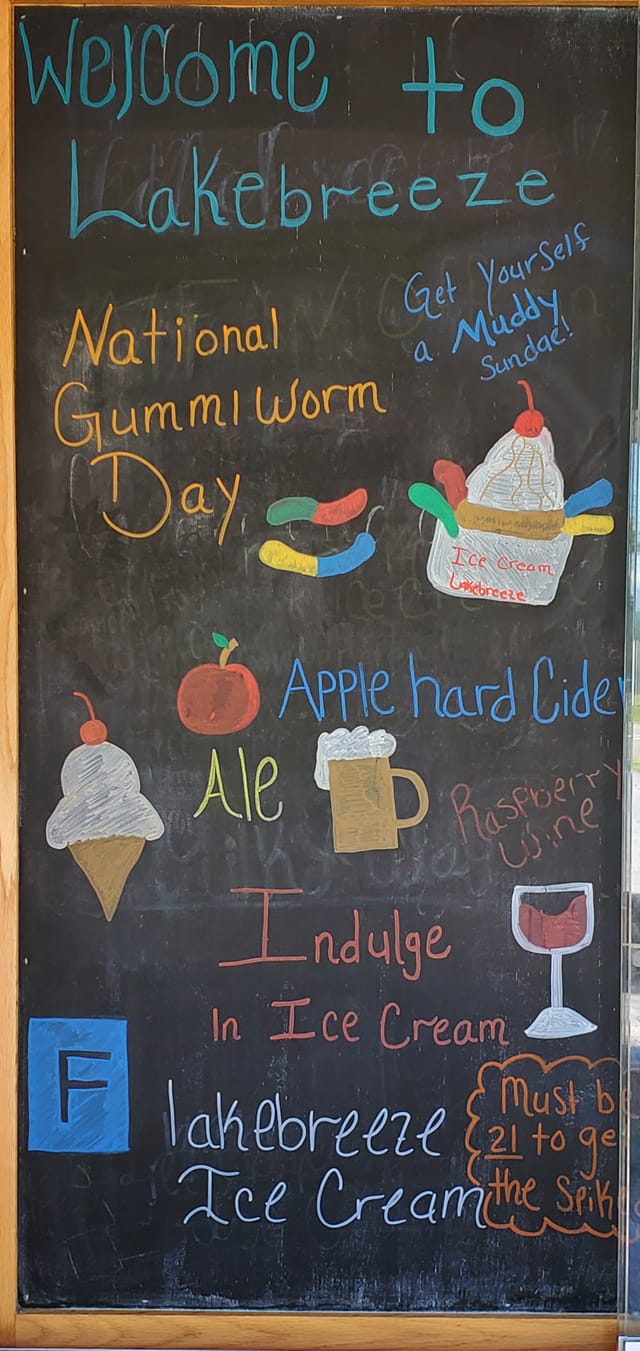 Welcome to
Lakebreeze
Get Yourself
a Muddy
Sundae!
National
Gummi Worm
Day
Ice Cream
Lakebreeze
Apple hard Cider
Ale
Raspberry
Wine
Indulge
In Ice Cream
F
lakebreeze
Ice Cream
Must b
21 to ge
the Spik